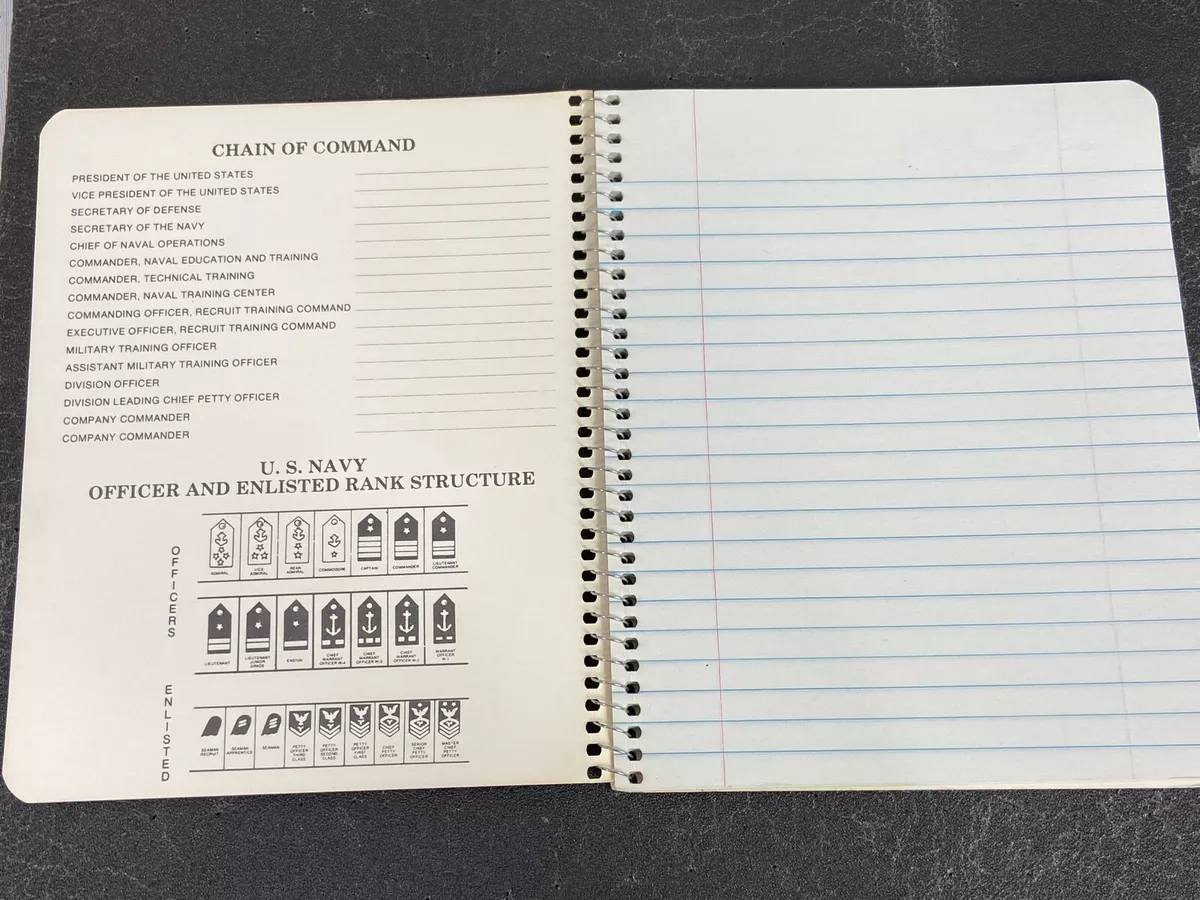 CHAIN OF COMMAND
PRESIDENT OF THE UNITED STATES
VICE PRESIDENT OF THE UNITED STATES
SECRETARY OF DEFENSE
SECRETARY OF THE NAVY
CHIEF OF NAVAL OPERATIONS
COMMANDER, NAVAL EDUCATION AND TRAINING
COMMANDER, TECHNICAL TRAINING
COMMANDER, NAVAL TRAINING CENTER
COMMANDING OFFICER, RECRUIT TRAINING COMMAND
EXECUTIVE OFFICER, RECRUIT TRAINING COMMAND
MILITARY TRAINING OFFICER
ASSISTANT MILITARY TRAINING OFFICER
DIVISION OFFICER
DIVISION LEADING CHIEF PETTY OFFICER
COMPANY COMMANDER
COMPANY COMMANDER
U. S. NAVY
OFFICER AND ENLISTED RANK STRUCTURE
OFFICERS
ADMIRAL
VICE
ADMIRAL
REAR
ADMIRAL
COMMODORE
CAPTAIN
COMMANDER
LIEUTENANT
COMMANDER
LIEUTENANT
LIEUTENANT
JUNIOR
GRADE
ENSIGN
CHIEF
WARRANT
OFFICER W-4
CHIEF
WARRANT
OFFICER W-3
CHIEF
WARRANT
OFFICER W-2
WARRANT
OFFICER
W-1
ENLISTED
SEAMAN
RECRUIT
SEAMAN
APPRENTICE
SEAMAN
PETTY
OFFICER
THIRD
CLASS
PETTY
OFFICER
SECOND
CLASS
PETTY
OFFICER
FIRST
CLASS
CHIEF
PETTY
OFFICER
SENIOR
CHIEF
PETTY
OFFICER
MASTER
CHIEF
PETTY
OFFICER